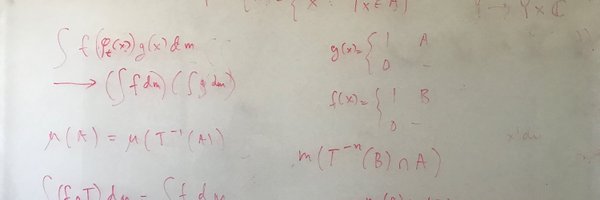 { x : Tx ∈ A }
∫ f(φ_t(x)) g(x) dm
→ (∫ f dm) (∫ g dm)
μ(A) = μ(T^{-1}(A))
∫ (f∘T) dm = ∫ f dm
g(x) = { 1 A
0 -
f(x) = { 1 B
0 -
m(T^{-n}(B) ∩ A)